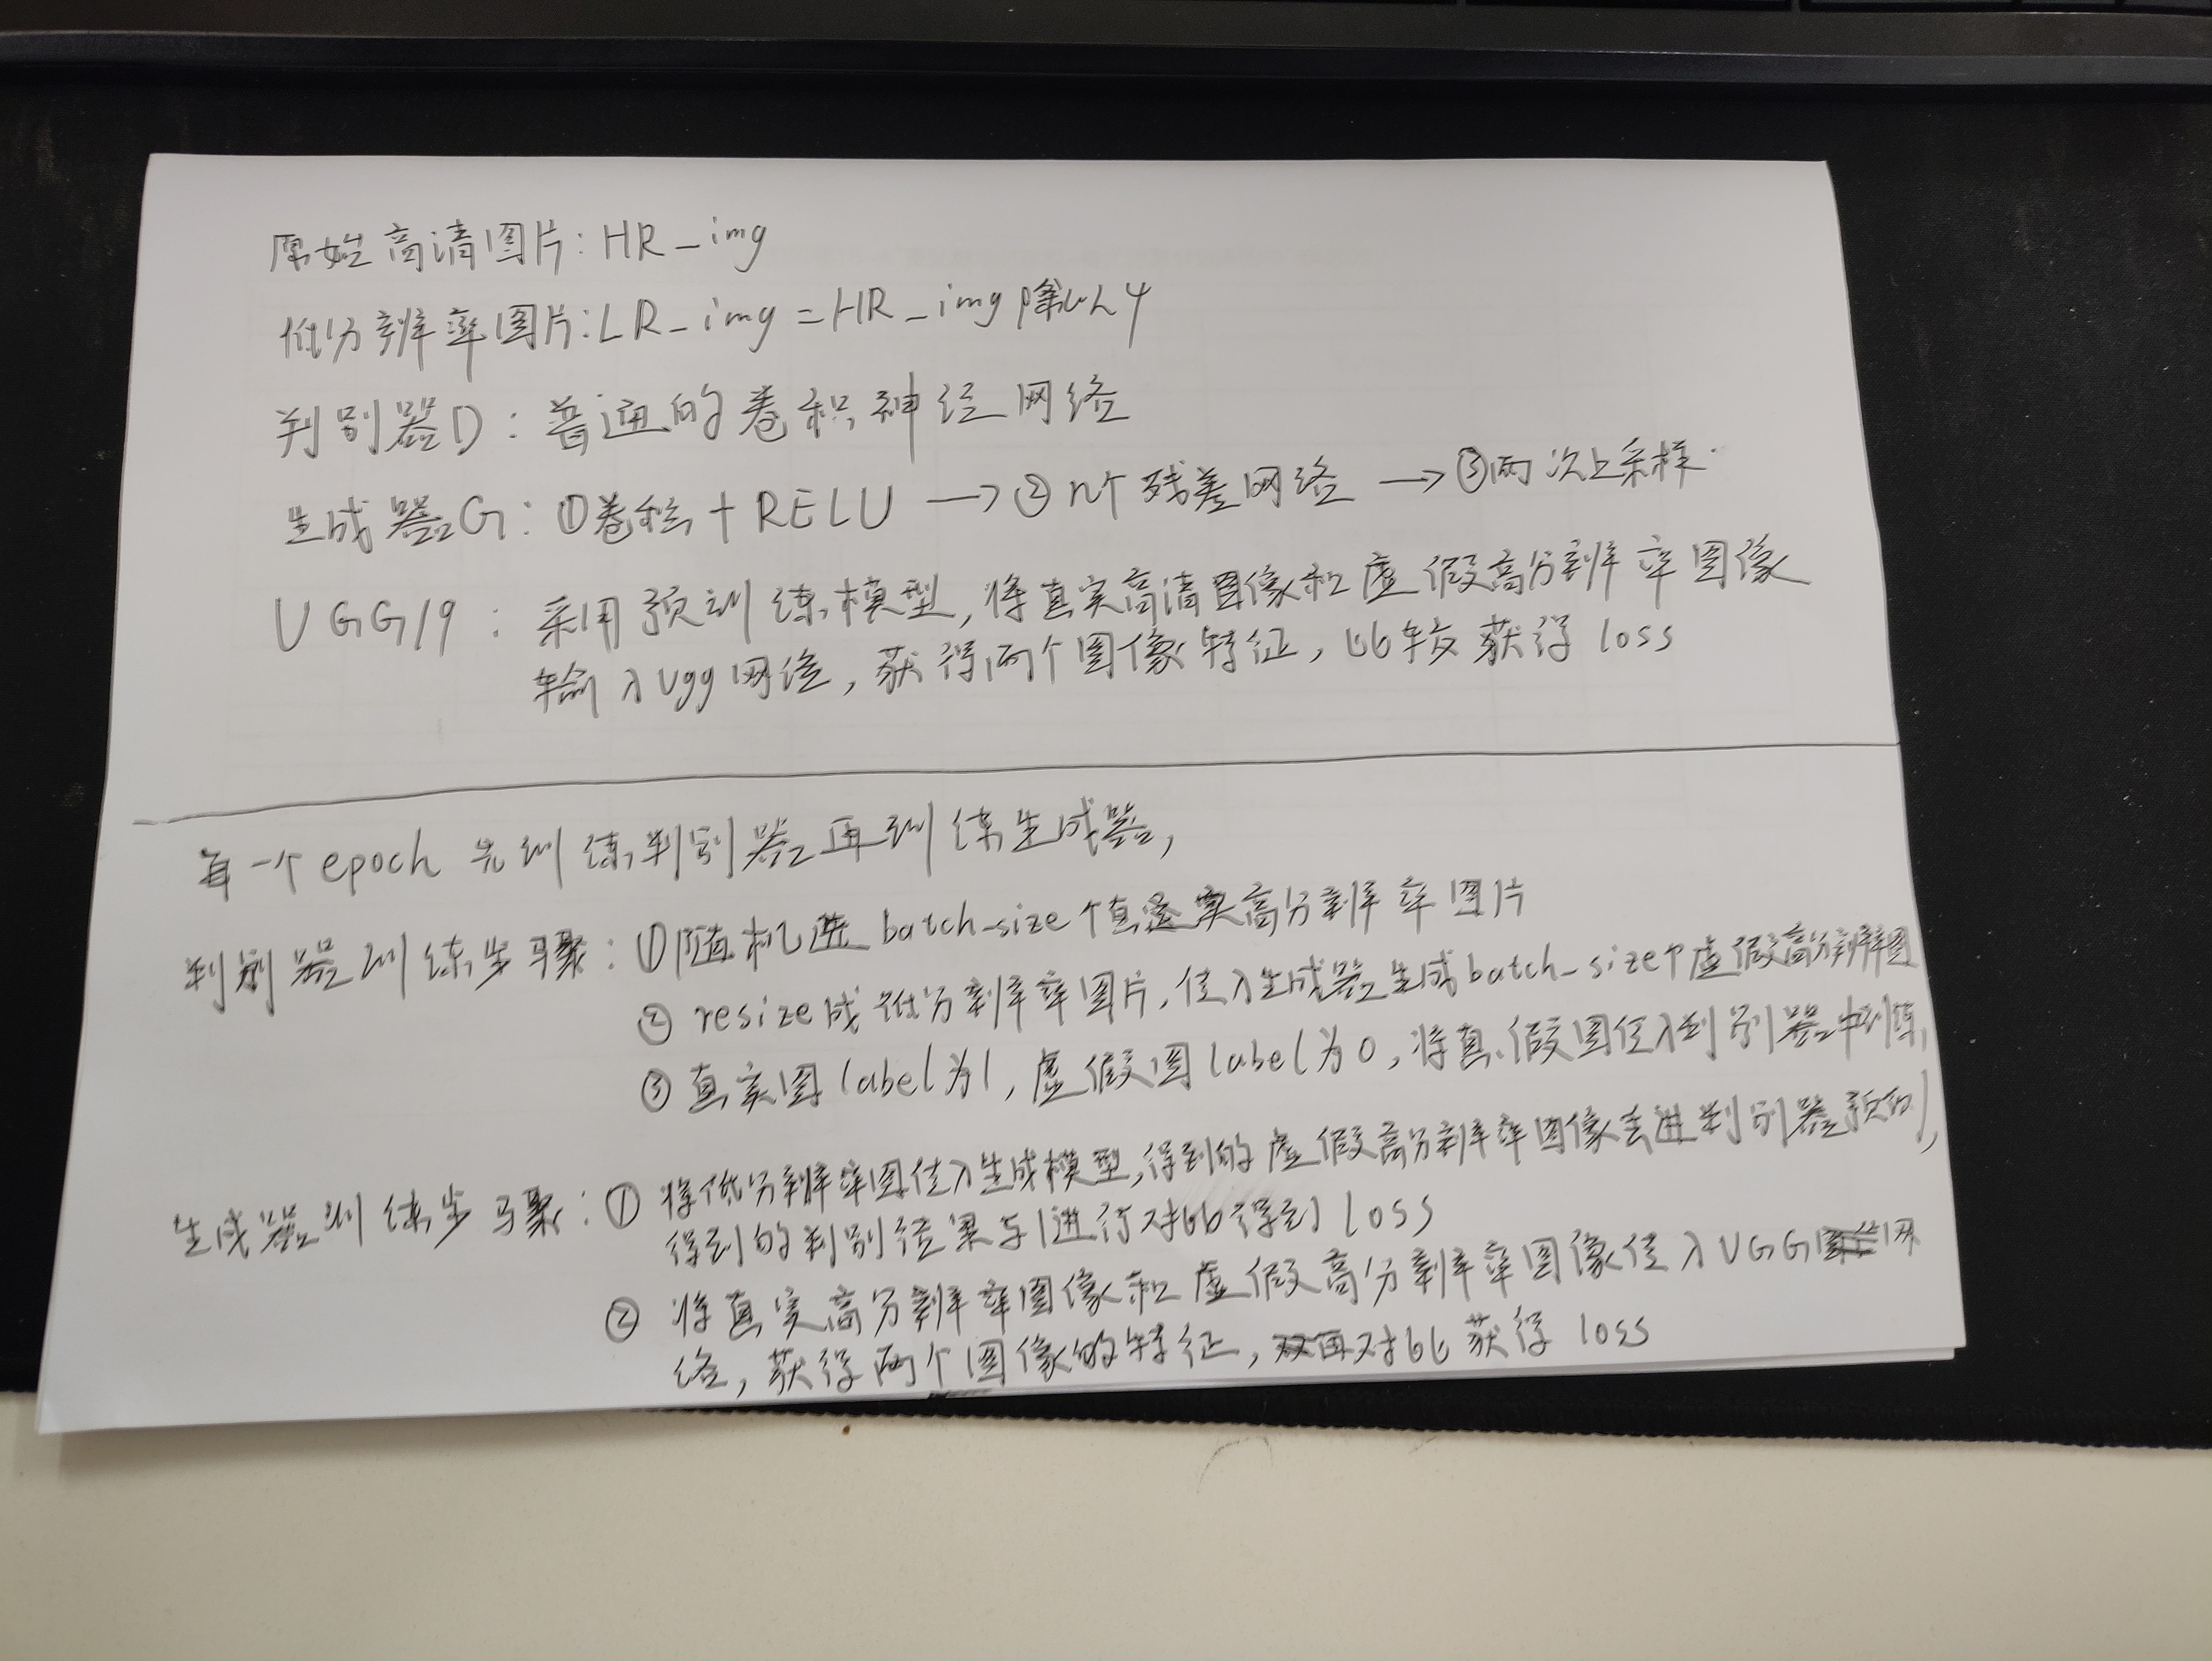 原始高清图片:HR_img
低分辨率图片:LR_img=HR_img除以4
判别器D:普通的卷积神经网络
生成器G:①卷积+RELU→②n个残差网络→③两次上采样.
VGG19:采用预训练模型,将真实高清图像和虚假高分辨率图像
输入vgg网络,获得两个图像特征,比较获得loss
每一个epoch先训练判别器再训练生成器,
判别器训练步骤:①随机选batch_size个真实高分辨率图片
②resize成低分辨率图片,传入生成器生成batch_size个虚假高分辨率图
③真实图label为1,虚假图label为0,将真、假图传入到判别器中训练,
生成器训练步骤:①将低分辨率图传入生成模型,得到的虚假高分辨率图像丢进判别器预测,
得到的判别结果与1进行对比得到loss
②将真实高分辨率图像和虚假高分辨率图像传入VGG网
络,获得两个图像的特征,对比获得loss